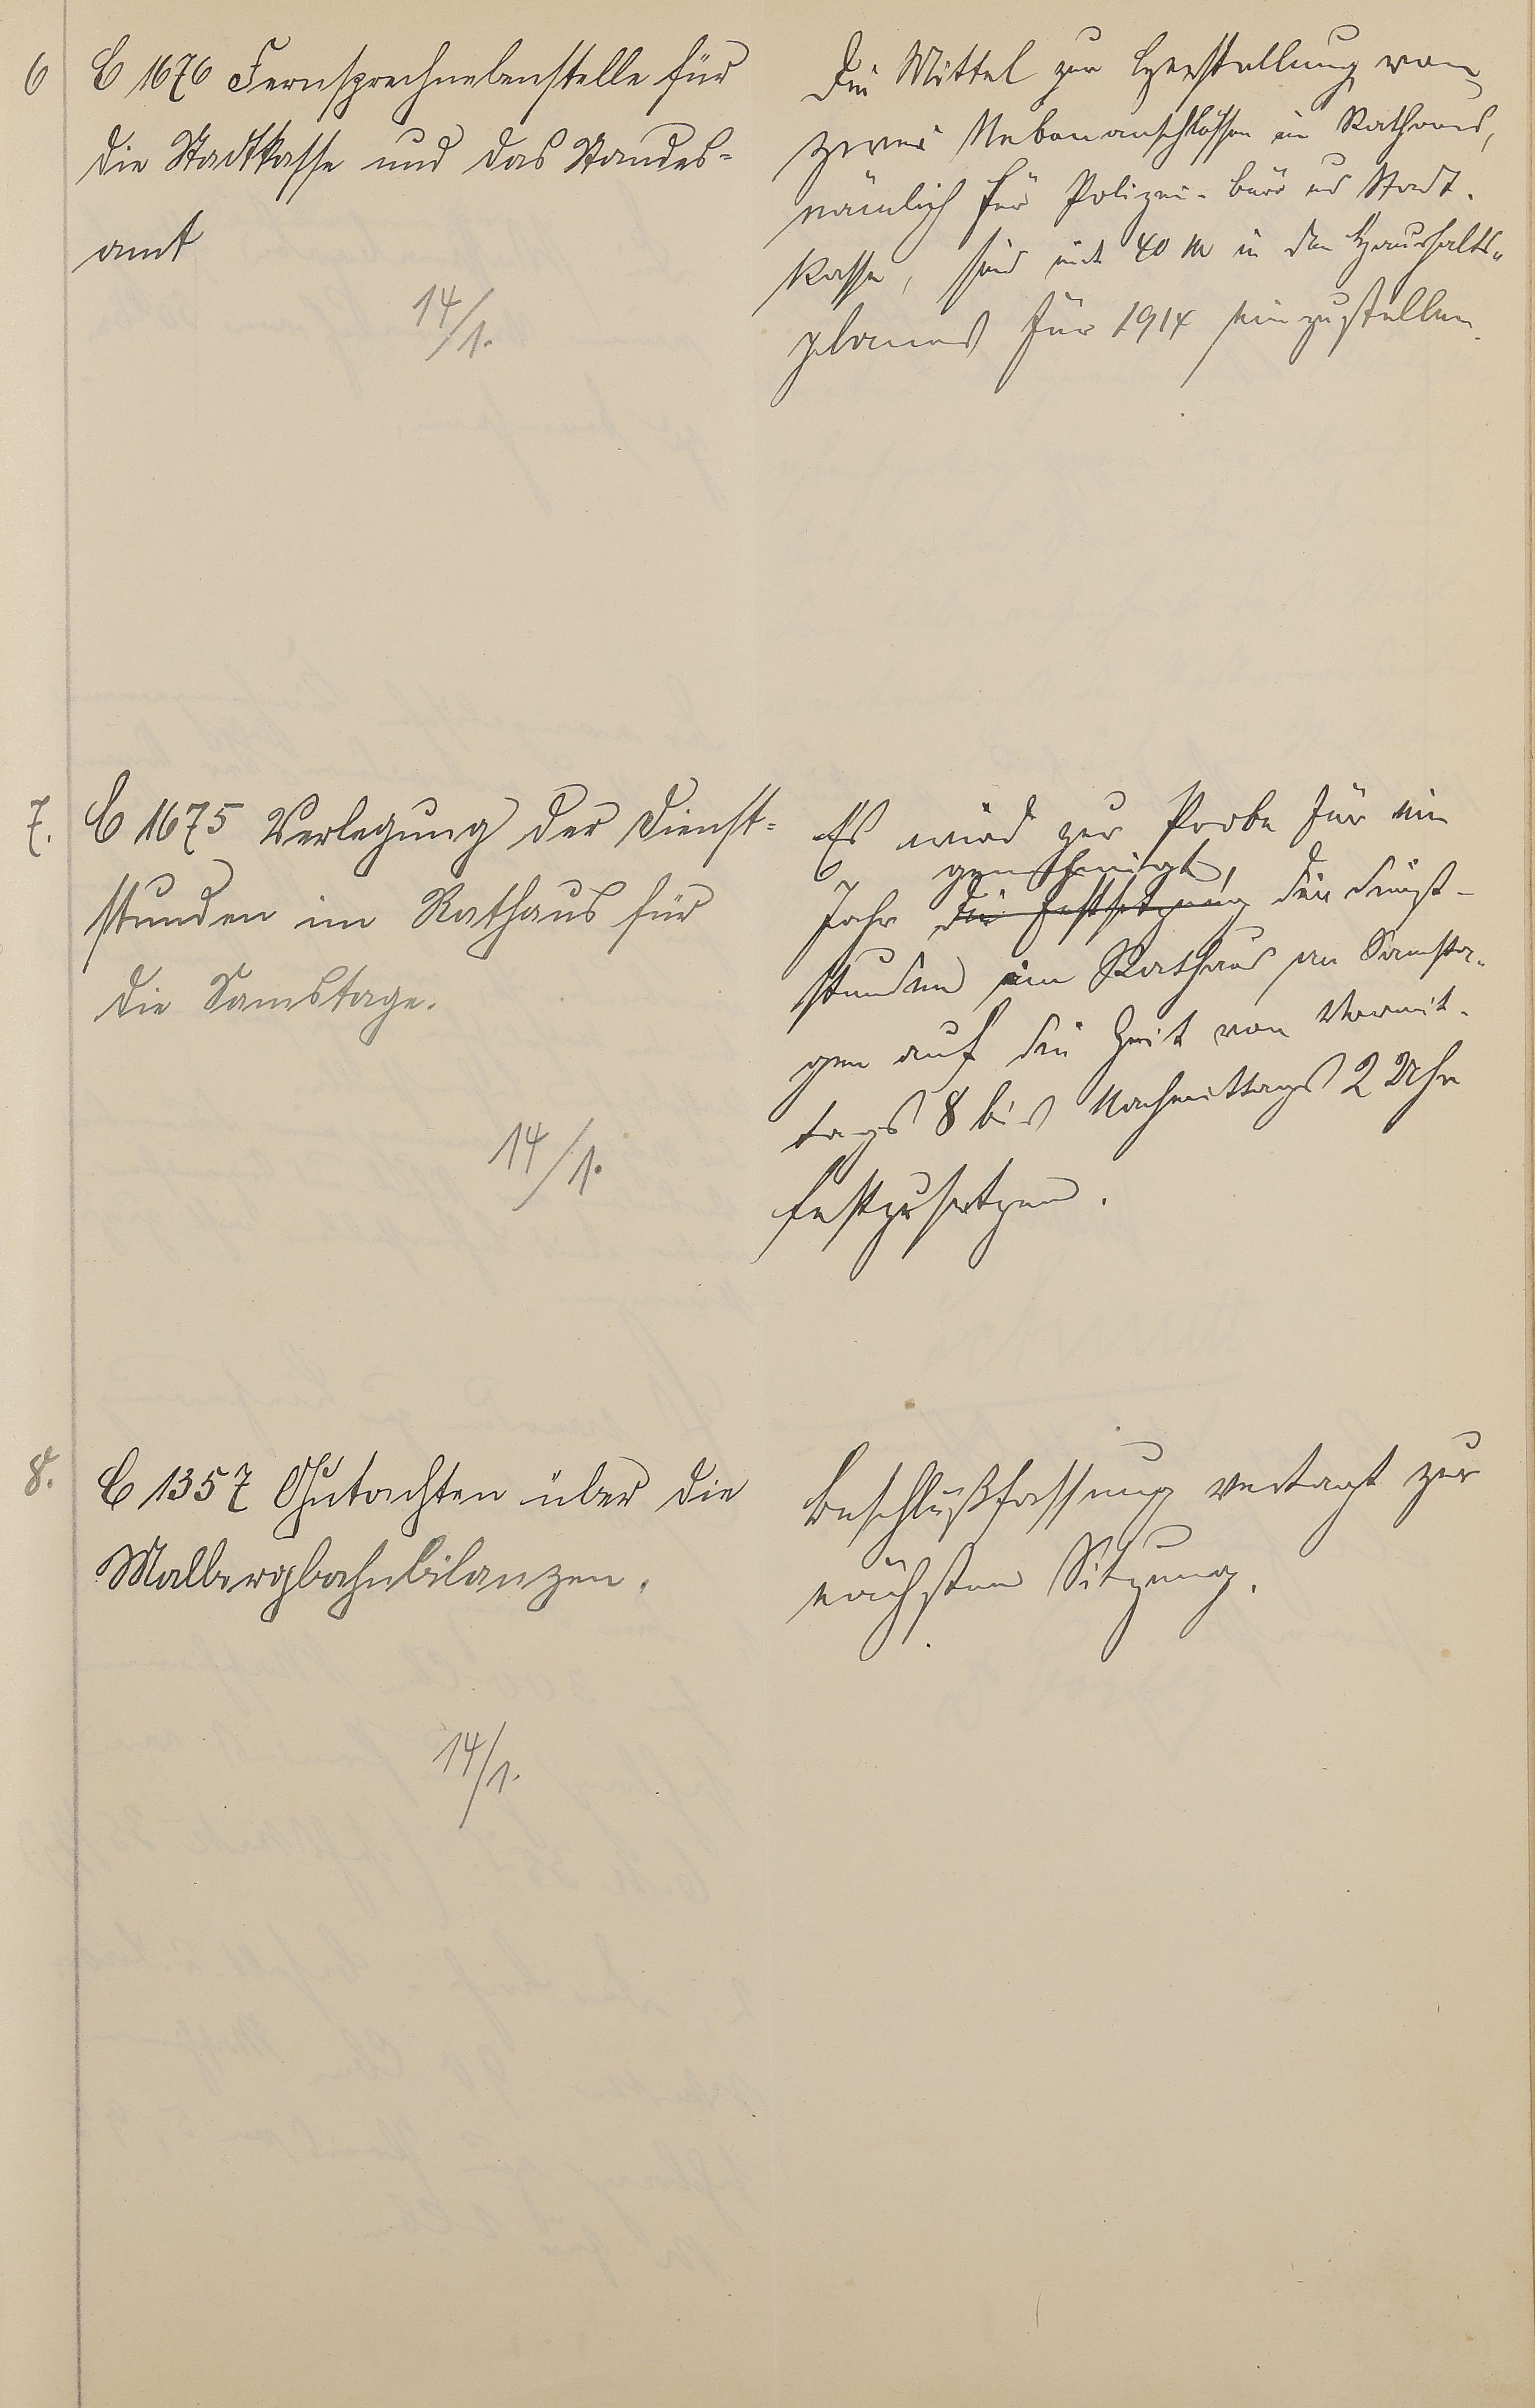 6
C 1676 Fernsprechnebenstelle für
die Stadtkasse und das Standes-
amt
14/1.
Die Mittel zur Herstellung von
zwei Nebenanschlüssen im Rathaus,
nämlich für Polizei-büro und Stadt-
kasse, sind mit 40 M in den Haushalts-
planes für 1914 einzustellen.
7.
C 1675 Verlegung der Dienst-
stunden im Rathaus für
die Samstage.
14/1.
Es wird zur Probe für ein
genehmigt,
Jahr die Festsetzung die Dienst-
stunden im Rathaus an Samsta-
gen auf die Zeit von Vormit-
tags 8 bis Nachmittags 2 Uhr
festzusetzen.
8.
C 1357 Gutachten über die
Malbergbahnbilanzen.
14/1.
Beschlußfassung vertagt zur
nächsten Sitzung.